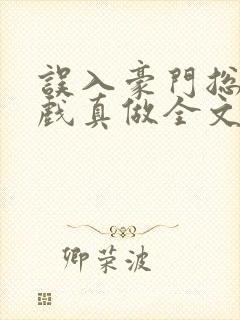 誤入豪門总
戲真做全文
卿荣波